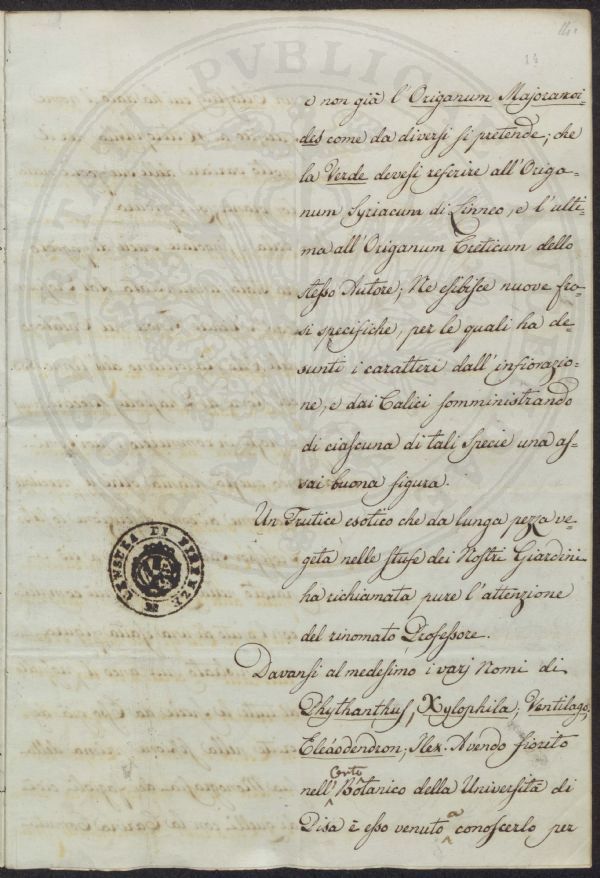 14
e non già l'Origanum Majoranoi-
des come da diversi si pretende; che
la Verde devesi referire all'Origa-
num Syriacum di Linneo, e l'ulti-
ma all'Origanum Creticum dello
stesso Autore; Ne esibisce nuove fra-
si specifiche, per le quali ha de-
sunti i caratteri dall'infiorazio-
ne, e dai Calici somministrando
di ciascuna di tali specie una as-
sai buona figura.
Un Frutice esotico che da lunga pezza ve-
geta nelle stufe dei Nostri Giardini
ha richiamata pure l'attenzione
del rinomato Professore.
Davansi al medesimo i varj Nomi di
Phythanthus, Xylophila, Ventilago,
Eleáodendron, Ilex. Avendo fiorito
nell'Orto Botanico della Università di
Pisa è esso venuto a conoscerlo per
CENSURA DI FIRENZE